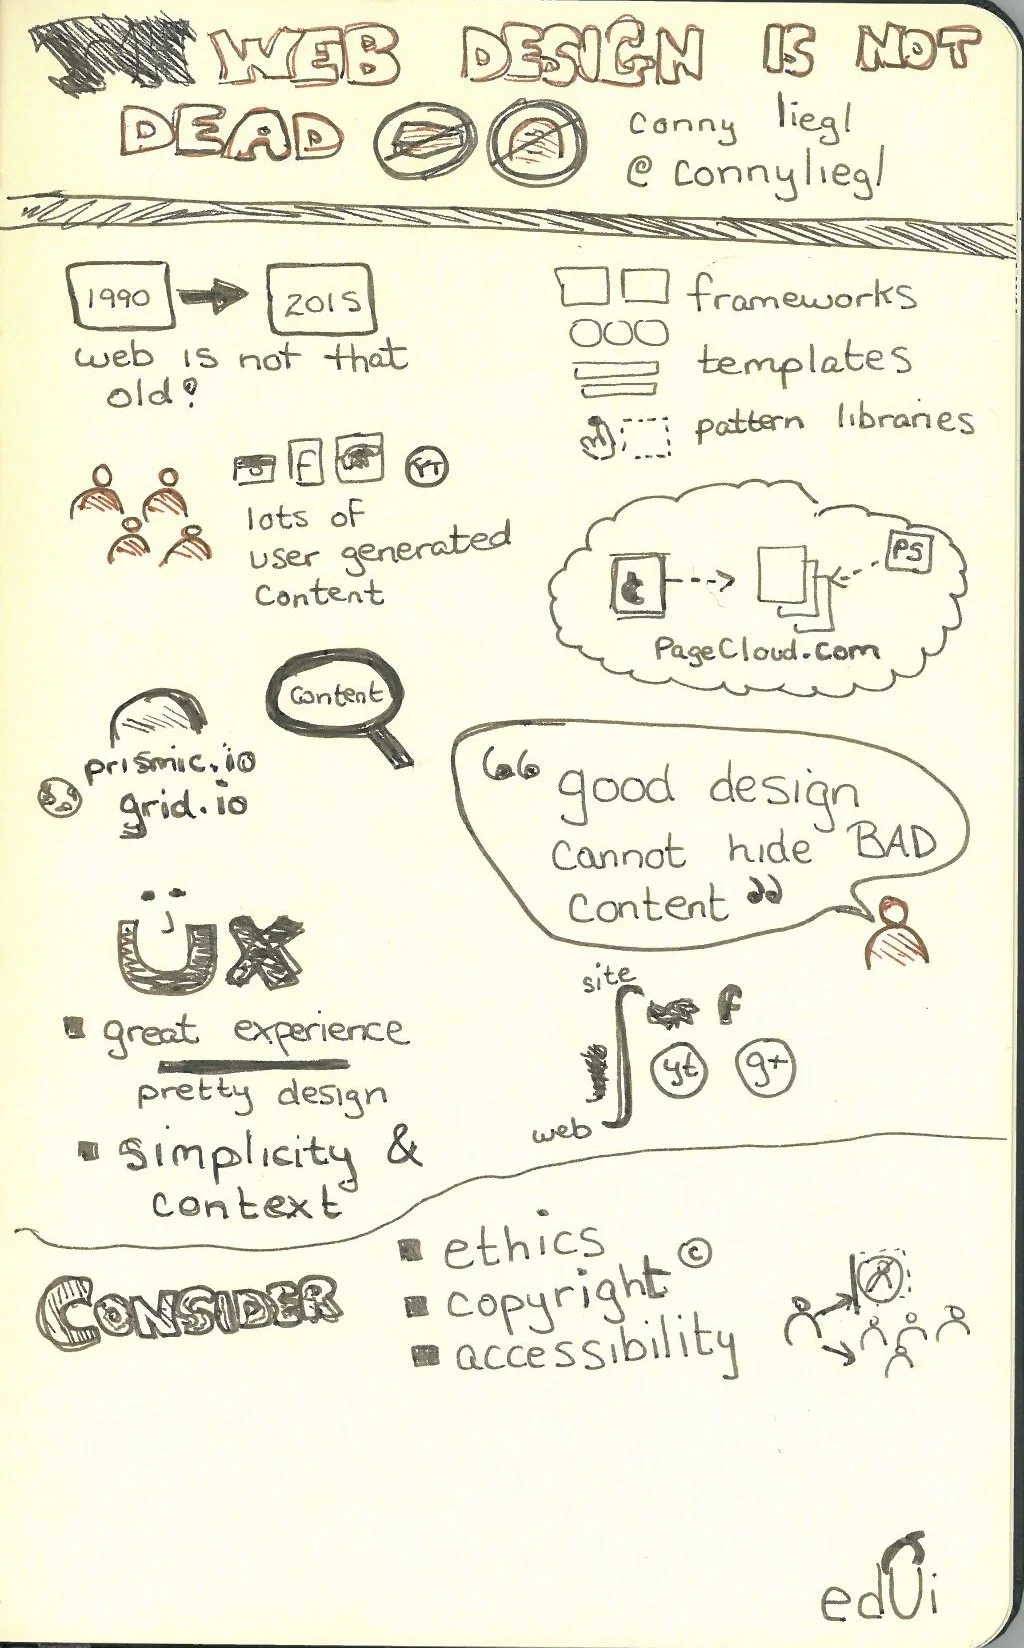 WEB DESIGN IS NOT
DEAD
conny liegl
@connyliegl
1990
2015
web is not that
old?
frameworks
templates
pattern libraries
f
YT
lots of
user generated
content
t
PS
PageCloud.com
content
prismic.io
grid.io
“ good design
cannot hide BAD
content ”
ÜX
great experience
pretty design
simplicity &
context
site
f
yt
g+
web
CONSIDER
ethics
copyright ©
accessibility
edUi